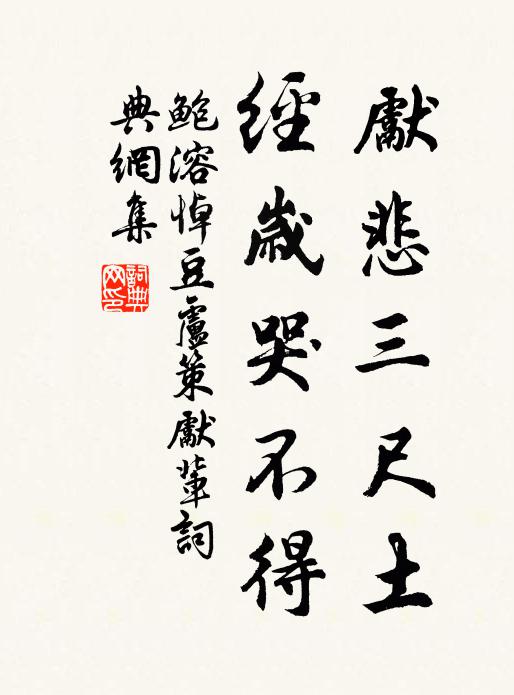 獻悲三尺土
經歲哭不得
鮑溶悼豆盧策獻輩詞
典網集
詞典網印